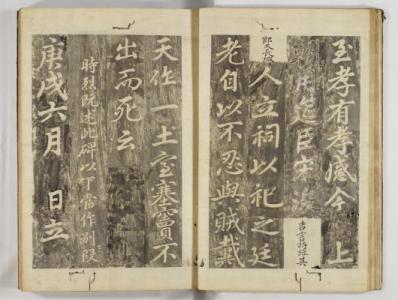 至孝有孝感今 上
用筵臣宋浚
吉言將録其
人立祠以祀之廷
老自以不忍與賊戴
天作一土室塞竇不
出而死云
時烈既述此碑以下當作別段
庚戌六月 日立